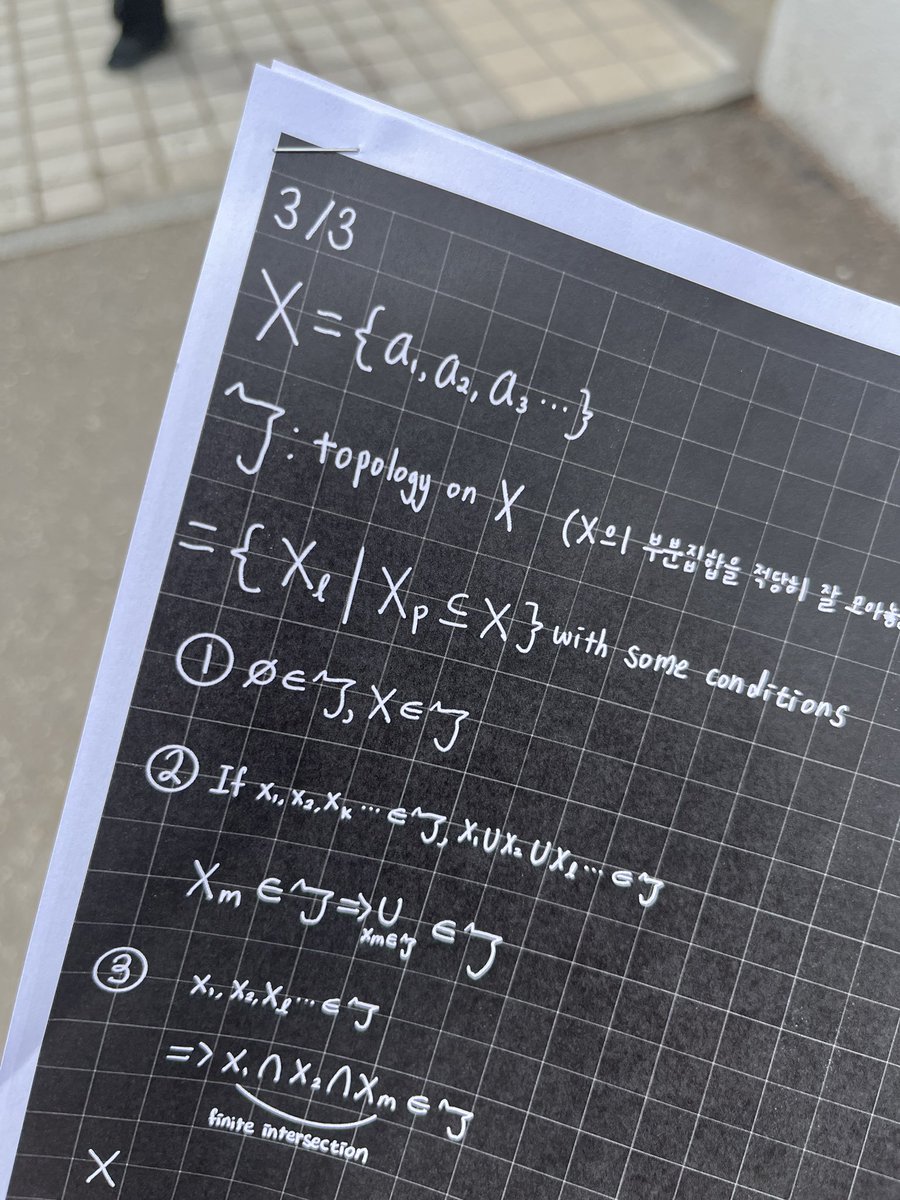 3/3
X = {a₁, a₂, a₃ ⋯}
𝒯 : topology on X (X의 부분집합을 적당히 잘 모아놓
= {X_l | X_p ⊆ X} with some conditions
① ∅ ∈ 𝒯, X ∈ 𝒯
② If X₁, X₂, X_k ⋯ ∈ 𝒯, X₁ ∪ X₂ ∪ X_l ⋯ ∈ 𝒯
X_m ∈ 𝒯 ⇒ ∪_{X_m ∈ 𝒯} ∈ 𝒯
③ X₁, X₂, X_l ⋯ ∈ 𝒯
⇒ X₁ ∩ X₂ ∩ X_m ∈ 𝒯
finite intersection
X